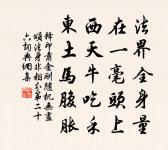 法界全身量
在一毫頭上
西天牛吃禾
東土馬腹脹
釋印肅金剛隨機無盡
頌法身非相分第二十
六詞典網集